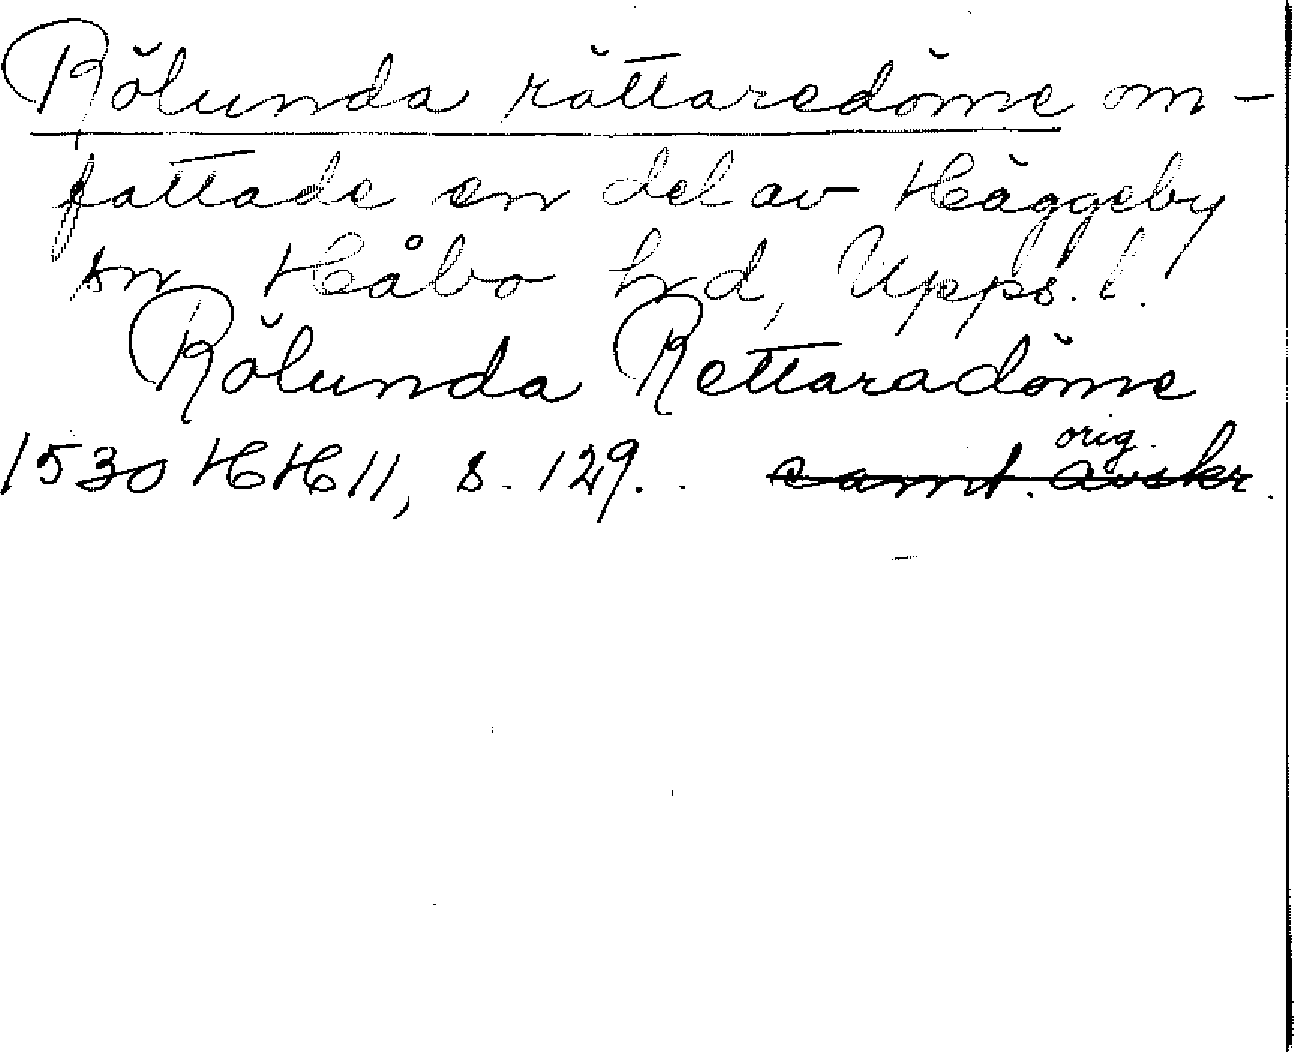 Rölunda rättaredöme om-
fattade en del av Häggeby
sn Håbo hd, Upps. l.
Rölunda Rettaradöme
orig.
1530 HH 11, s. 129. samt. avskr.